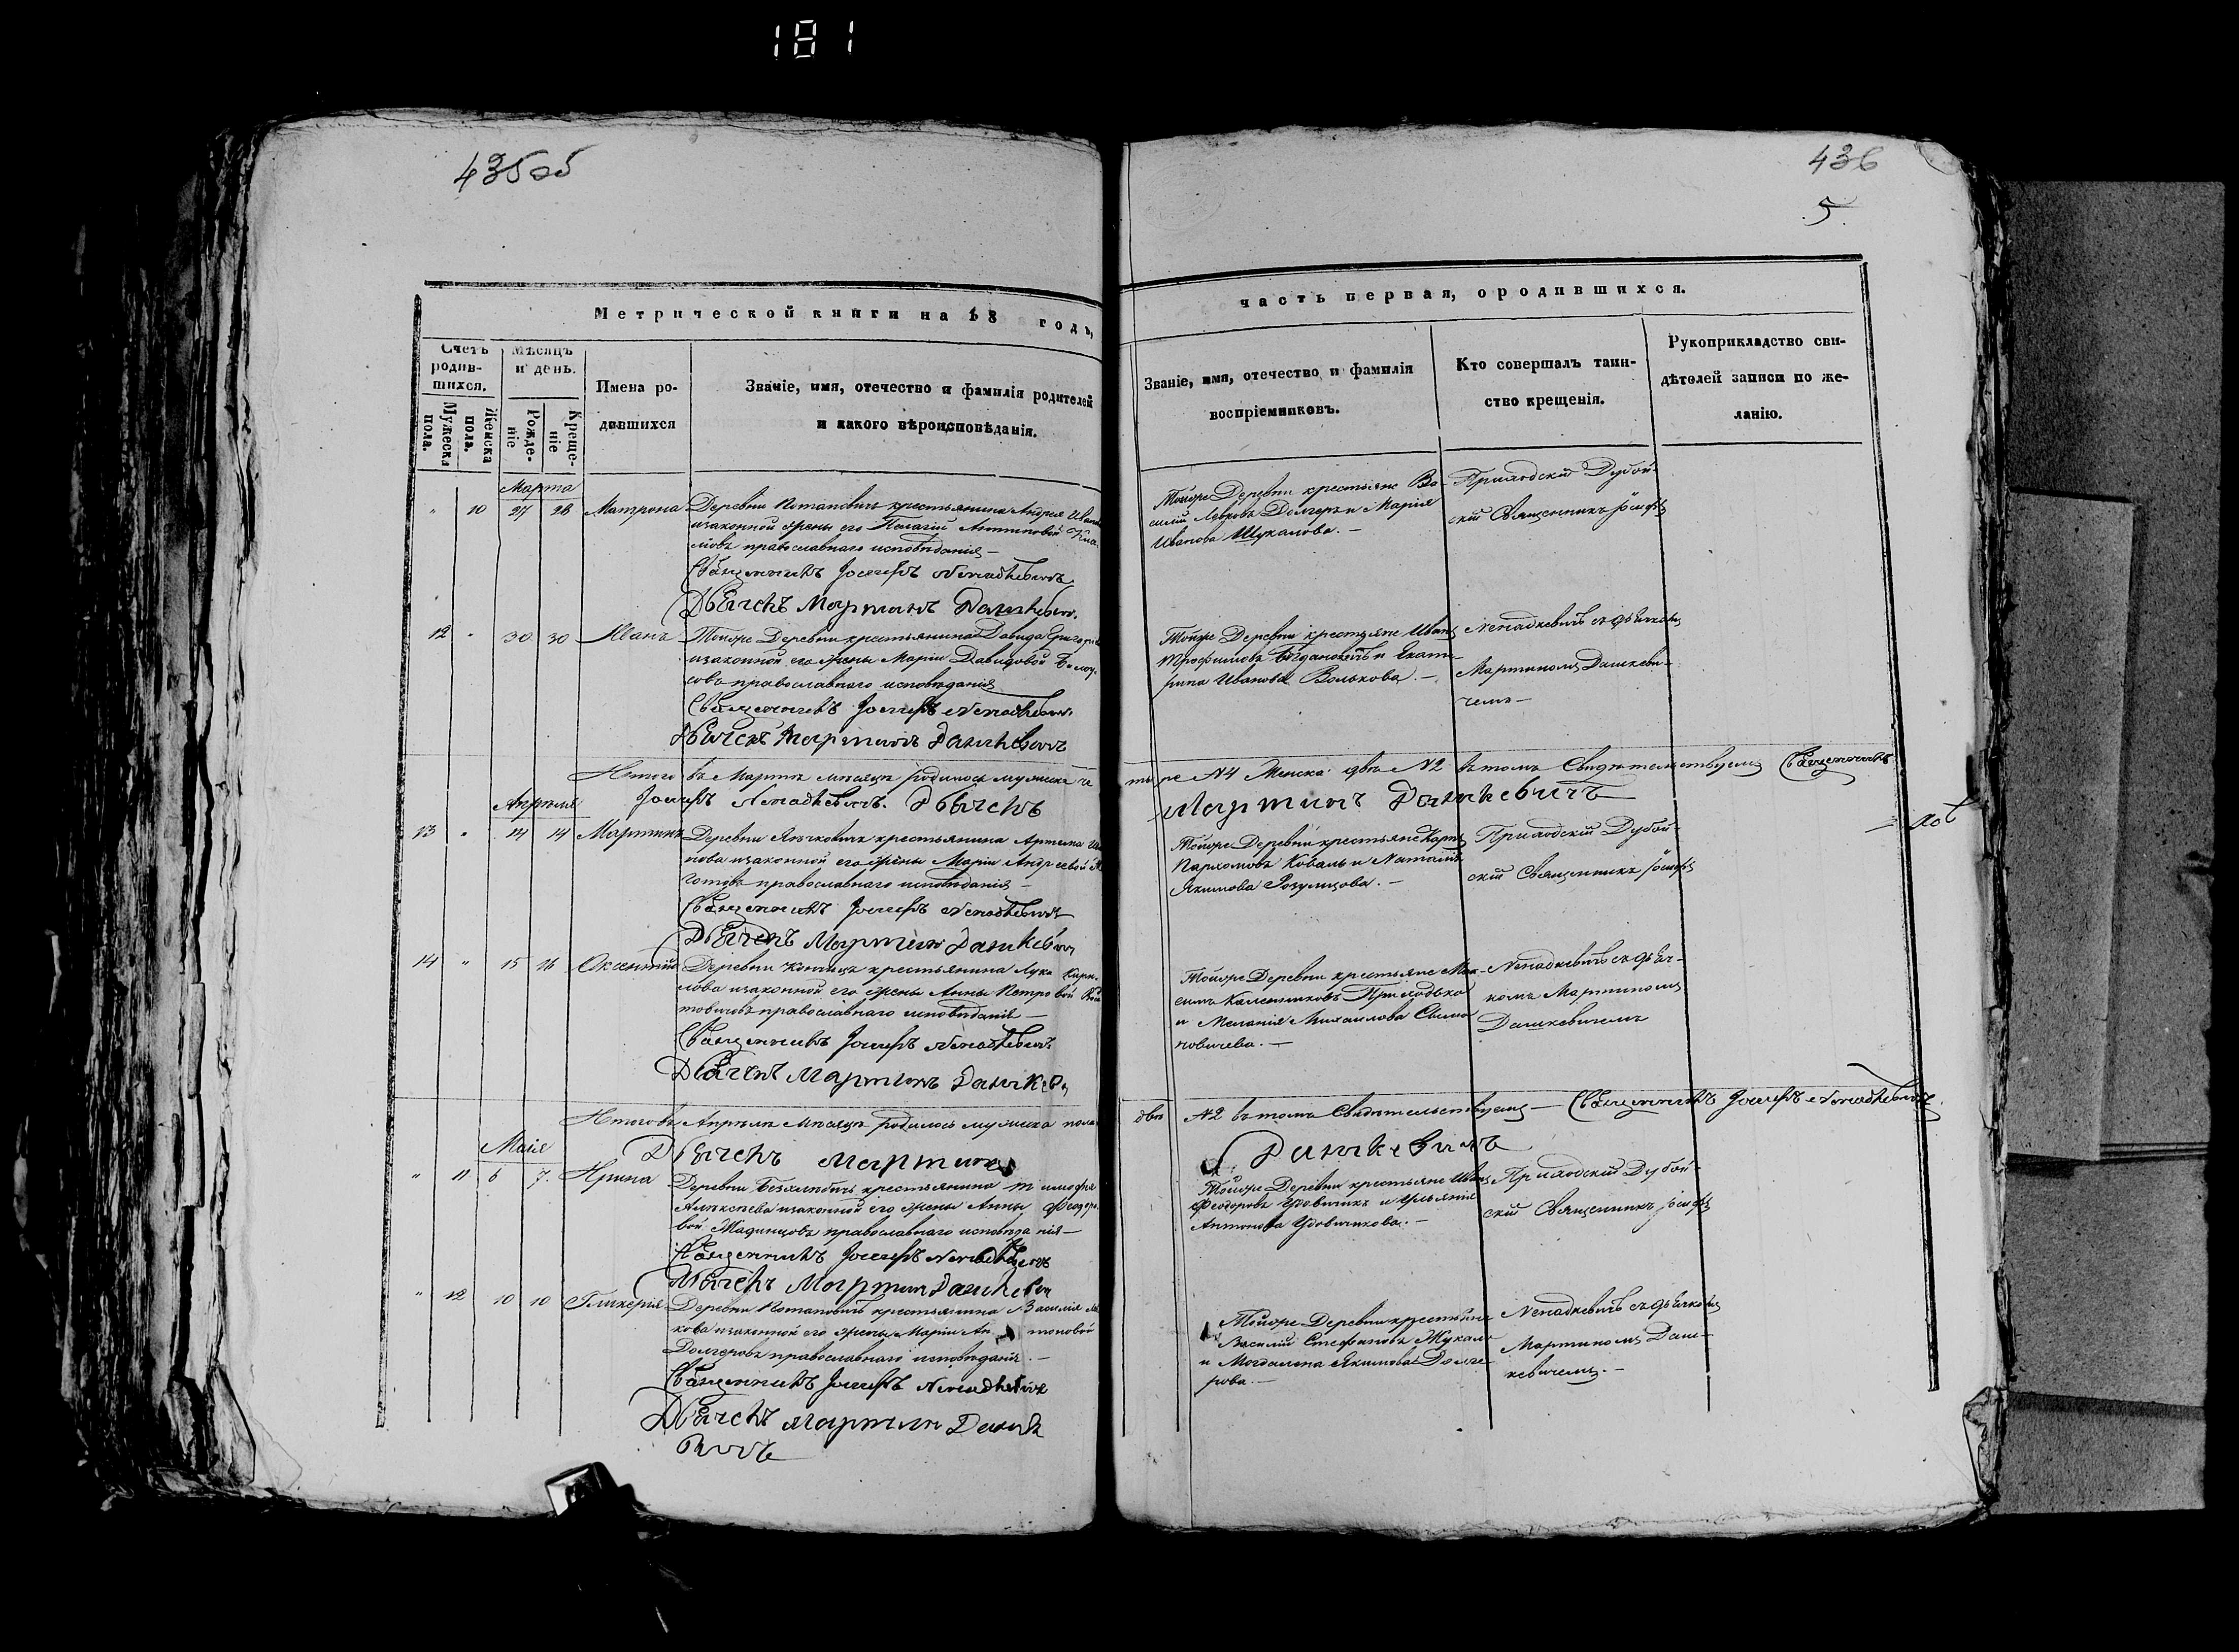 181
435об
436
5.
Метрической книги на 18 годъ,
часть первая, о родившихся.
Счетъ родив-шихся.
Мужеска пола.
Женска пола.
Мѣсяцъ и день.
Рожде-ніе
Креще-ніе
Имена ро-
дившихся
Званіе, имя, отечество и фамилія родителей
и какого вѣроисповѣданія.
Званіе, имя, отечество и фамилія
воспріемниковъ.
Кто совершалъ таин-
ство крещенія.
Рукоприкладство сви-
дѣтелей записи по же-
ланію.
Марта
" 10 27 28 Матрона Деревни Потаповичъ крестьянина Андрея
изаконной жены его Пелагіи Антиповой
православнаго исповѣданія —
Священникъ Іосифъ Ненадкевичъ
Дьячекъ Мартинъ Дашкевич.
Тойже Деревни крестьяне Ва-
силій Долгеръ и Марія
Иванова Шукалова. —
Приходскій Дубой-
скій Священникъ Іосифъ
12 " 30 30 Иванъ Тойже Деревни крестьянина Давида
изаконной его жены Маріи Давидовой
православнаго исповѣданія
Священникъ Іосифъ Ненадкевич.
Дьячекъ Мартинъ Дашкевичъ
Тойже Деревни крестьяне Иванъ
Трофимовъ и Екате-
рина Иванова Волькова. —
Ненадкевичъ съ дьячкомъ
Мартиномъ Дашкеви-
чемъ —
Итого въ Мартѣ мѣсяцѣ родилось мужска че
тыре №4 Женска двѣ №2 вътомъ Свидѣтельствуемъ Священникъ
Іосифъ Ненадкевичъ. Дьячекъ
Мартинъ Дашкевичъ
Апрѣля
13 " 14 14 Мартинъ Деревни крестьянина Артема Ива
нова изаконной его жены Маріи Андреевой
православнаго исповѣданія —
Священникъ Іосифъ Ненадкевичъ
Дьячекъ Мартинъ Дашкевич
Тойже Деревни крестьяне
Пархомовъ Коваль и Наталія
Якимова —
Приходскій Дубой-
скій Священникъ Іосифъ
14 " 15 16 Оксентій Деревни крестьянина Луки Кири-
лова изаконной его жены Анны Петровой Вой
товичовъ православнаго исповѣданія —
Священникъ Іосифъ Ненадкевичъ
Дьячекъ Мартинъ Дашкев
Тойже Деревни крестьяне Мак-
симъ Приходько
и Меланія Михаилова
—
Ненадкевичъ съ дьяч-
комъ Мартиномъ
Дашкевичемъ
Итого въ Апрѣлѣ мѣсяцѣ родилось мужска пола
два №2 вътомъ Свидѣтельствуемъ — Священникъ Іосифъ Ненадкевичъ.
Дьячекъ Мартинъ
Дашкевичъ
Маія
" 11 6 7. Ирина Деревни крестьянина Тимофея
Алексѣева изаконной его жены Анны Феодоро
вой православнаго исповѣданія —
Священникъ Іосифъ Ненадкевичъ
Дьячекъ Мартин Дашкевич
Тойже Деревни крестьяне Иванъ
Феодоровъ Удовичикъ и Ульянія
Антонова Удовичикова. —
Приходскій Дубой-
скій Священникъ Іосифъ
" 12 10 10 Гликерія Деревни Потаповичъ крестьянина Василія
кова изаконной его жены Маріи Антоновой
Долгеровъ православнаго исповѣданія. —
Священникъ Іосифъ Ненадкевичъ
Дьячекъ Мартин Дашк
евичъ
Тойже Деревни крестьяне
Василій Стефановъ
и Магдалена Якимова Долге
рова. —
Ненадкевичъ съ дьячкомъ
Мартиномъ Даш-
кевичемъ. —